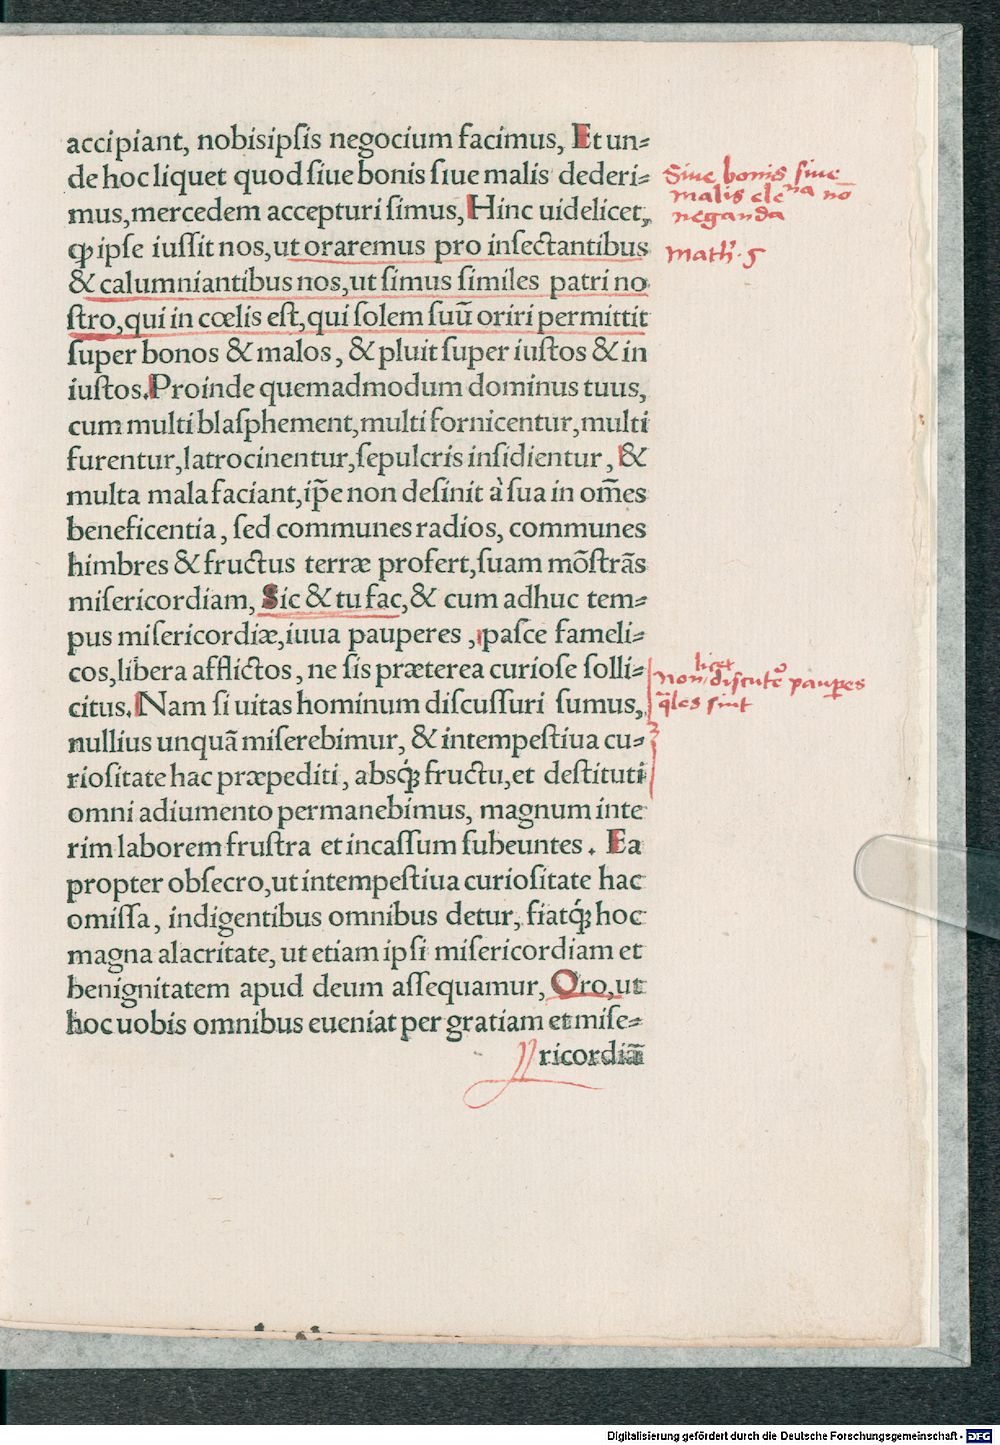 accipiant, nobisipſis negocium facimus, Et un⸗
de hoc liquet quod ſiue bonis ſiue malis dederi⸗
mus, mercedem accepturi ſimus, Hinc uidelicet,
ꝙ ipſe iuſſit nos, ut oraremus pro inſectantibus
& calumniantibus nos, ut ſimus ſimiles patri no
ſtro, qui in cœlis eſt, qui ſolem ſuū oriri permittit
ſuper bonos & malos, & pluit ſuper iuſtos & in
iuſtos. Proinde quemadmodum dominus tuus,
cum multi blaſphement, multi fornicentur, multi
furentur, latrocinentur, ſepulcris inſidientur, &
multa mala faciant, ip̄e non deſinit à ſua in om̄es
beneficentia, ſed communes radios, communes
himbres & fructus terræ profert, ſuam mōſtrās
miſericordiam, Sic & tu fac, & cum adhuc tem⸗
pus miſericordiæ, iuua pauperes, paſce fameli⸗
cos, libera afflictos, ne ſis præterea curioſe ſolli⸗
citus. Nam ſi uitas hominum diſcuſſuri ſumus,
nullius unquā miſerebimur, & intempeſtiua cu⸗
rioſitate hac præpediti, absq́ꝫ fructu, et deſtituti
omni adiumento permanebimus, magnum inte
rim laborem fruſtra et incaſſum ſubeuntes. Ea
propter obſecro, ut intempeſtiua curioſitate hac
omiſſa, indigentibus omnibus detur, fiatq́ꝫ hoc
magna alacritate, ut etiam ipſi miſericordiam et
benignitatem apud deum aſſequamur, Oro, ut
hoc uobis omnibus eueniat per gratiam et miſe⸗
ricordiā
Siue bonis ſiue
malis ele^na nō
neganda
Math. 5
licet
non diſcutēº pauꝑes
q̄les ſint
Digitalisierung gefördert durch die Deutsche Forschungsgemeinschaft - DFG